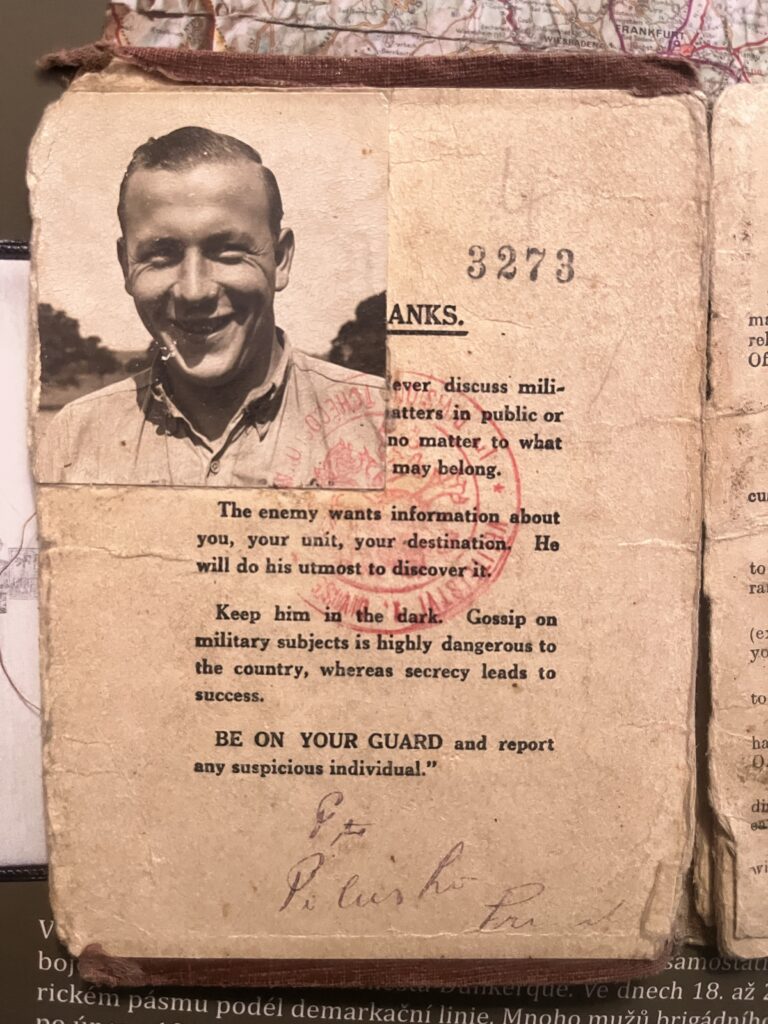 FRANKFURT
WIESBADEN
3273
ANKS.
ever discuss mili-
atters in public or
no matter to what
may belong.
The enemy wants information about
you, your unit, your destination. He
will do his utmost to discover it.
Keep him in the dark. Gossip on
military subjects is highly dangerous to
the country, whereas secrecy leads to
success.
BE ON YOUR GUARD and report
any suspicious individual."
ma
rel
Of
cu
to
ra
(ex
yo
to
ha
O.
di
wi
V
boj
Dunkerque. Ve dnech 18. až 2
rickém pásmu podél demarkační linie. Mnoho mužů brigádního